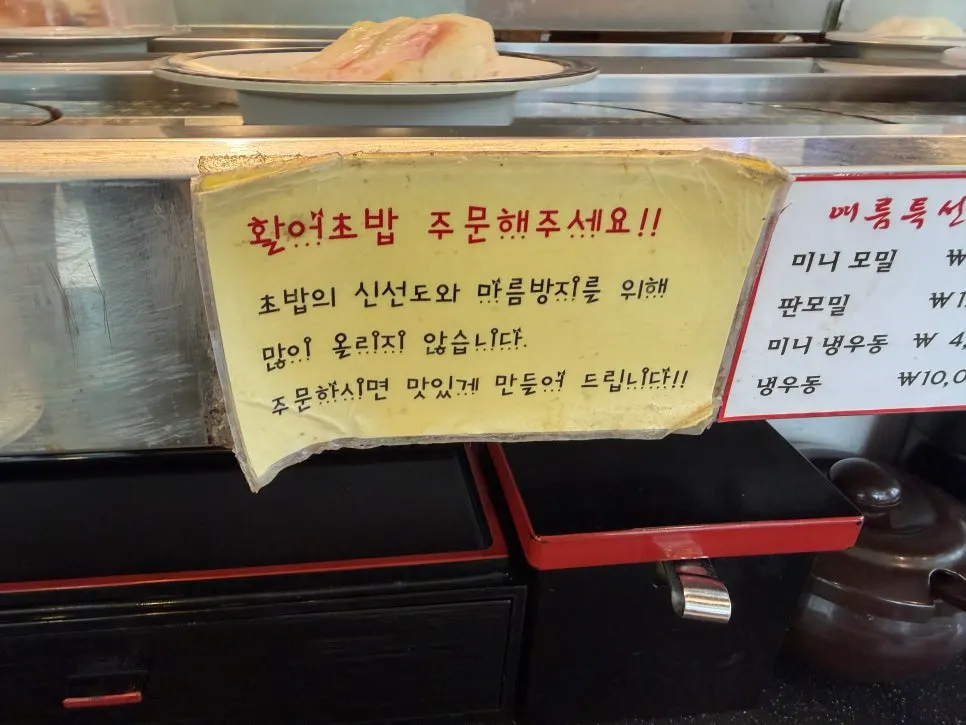 활어초밥 주문해주세요!!
초밥의 신선도와 마름방지를 위해
많이 올리지 않습니다.
주문하시면 맛있게 만들어 드립니다!!
여름특선
미니 모밀 ₩
판모밀 ₩1
미니 냉우동 ₩ 4,
냉우동 ₩10,0